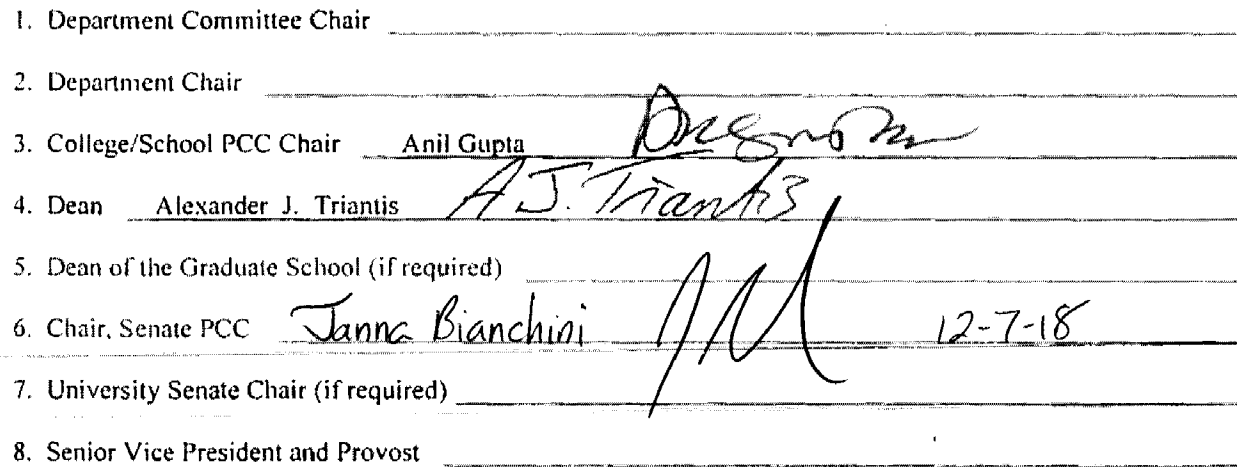 1. Department Committee Chair
2. Department Chair
3. College/School PCC Chair Anil Gupta
4. Dean Alexander J. Triantis A J. Triantis
5. Dean of the Graduate School (if required)
6. Chair, Senate PCC Janna Bianchini 12-7-18
7. University Senate Chair (if required)
8. Senior Vice President and Provost